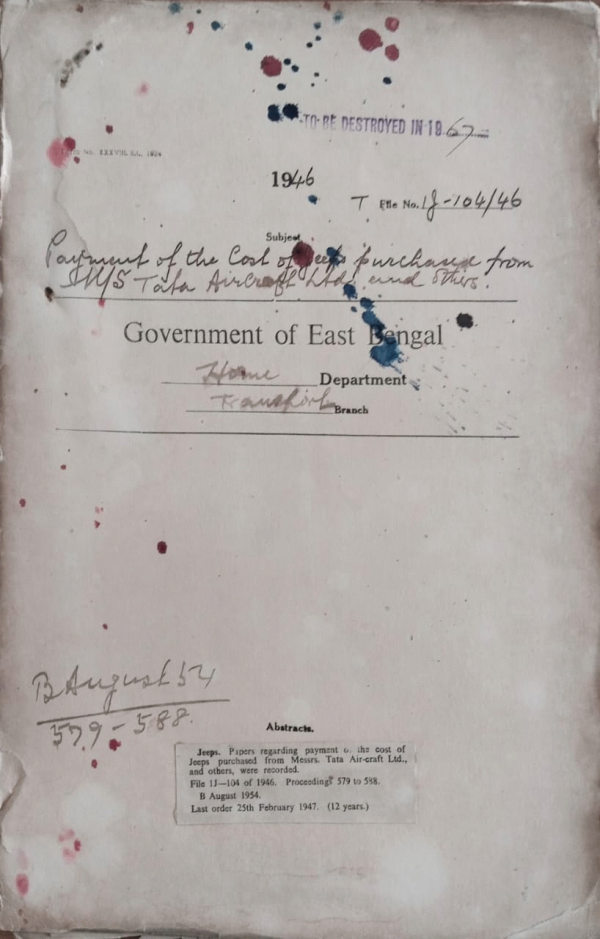 TO BE DESTROYED IN 19 67
1946
T File No. 1J-104/46
Subject
Payment of the Cost of Jeeps purchased from
M/S Tata Aircraft Ltd. and others.
Government of East Bengal
Home Department
Transport Branch
B August 54
579-588.
Abstracts.
Jeeps. Papers regarding payment of the cost of
Jeeps purchased from Messrs. Tata Air-craft Ltd.,
and others, were recorded.
File 1J—104 of 1946. Proceedings 579 to 588.
B August 1954.
Last order 25th February 1947. (12 years.)